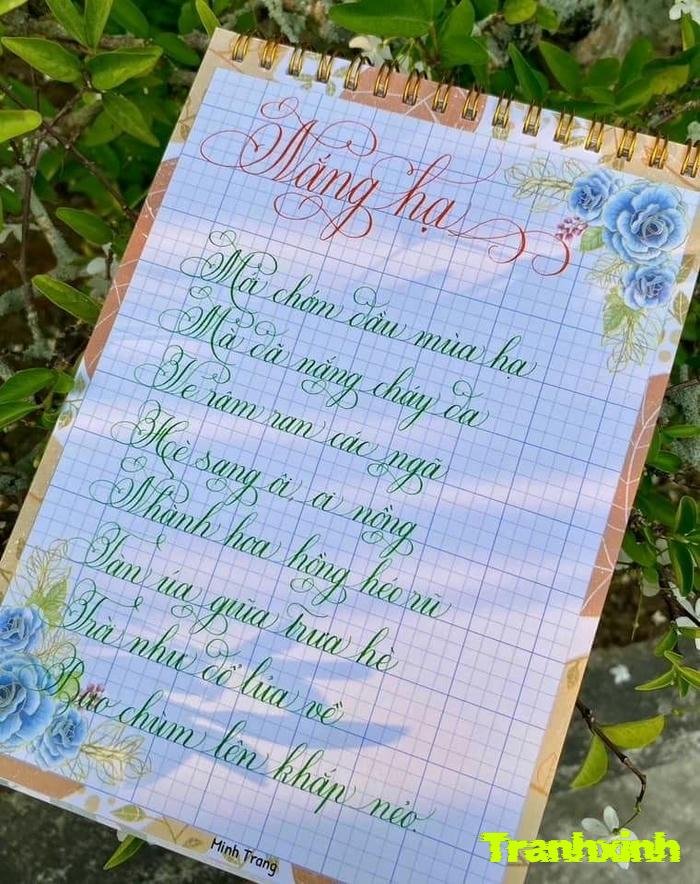 Nắng hạ
Mới chớm đầu mùa hạ
Mà đã nắng cháy da
Ve râm ran các ngã
Hè sang ôi ơi nồng
Nhành hoa hồng héo rũ
Tàn úa giữa trưa hè
Trời như đổ lửa về
Bao chùm lên khắp nẻo.
Minh Trang
Tranhxinh